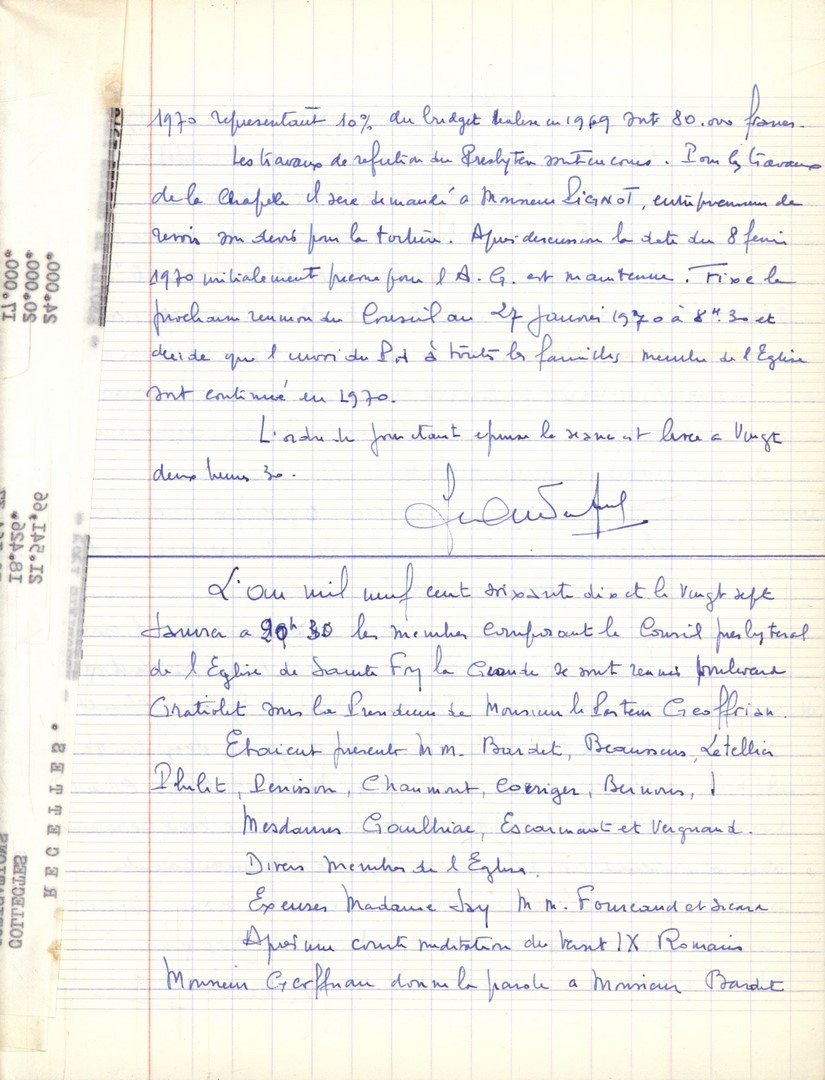 1970 representant 10% du budget realise en 1969 soit 80.000 francs.
Les travaux de refection du Presbytere sont en cours. Pour les travaux
de la Chapelle il sera demandé a Monsieur PIGNOT, entrepreneur de
revoir son devis pour la toiture. Apres discussion la date du 8 fevrier
1970 initialement prevue pour l A. G. est maintenue. Fixe la
prochaine reunion du Conseil au 27 Janvier 1970 à 8h.30 et
decide que l envoi du à toutes les familles membre de l Eglise
soit continué en 1970.
L'ordre du jour etant epuise la seance est levee a Vingt
deux heures 30.
L'an mil neuf cent soixante dix et le vingt sept
Janvier a 20h 30 les membres composant le Conseil presbyteral
de l Eglise de Sainte Foy la Grande se sont reunis boulevard
Gratiolet sous la Presidence de Monsieur le Pasteur Geoffrian.
Etaient presents M M. Bardet, Letellier
Denisson, Chaumont, Corriger,
Mesdames Gaulhiac, Escarmant et Vergnand.
Divers membres de l Eglise.
Excuses Madame Jay M M. Fourcaud et Sicard
Apres une courte meditation du IX Romains
Monsieur Geoffrian donne la parole a Monsieur Bardet
17.000*
20.000*
24.000*
18.426*
21.541,66
R E C E L L E S
COLLECTES